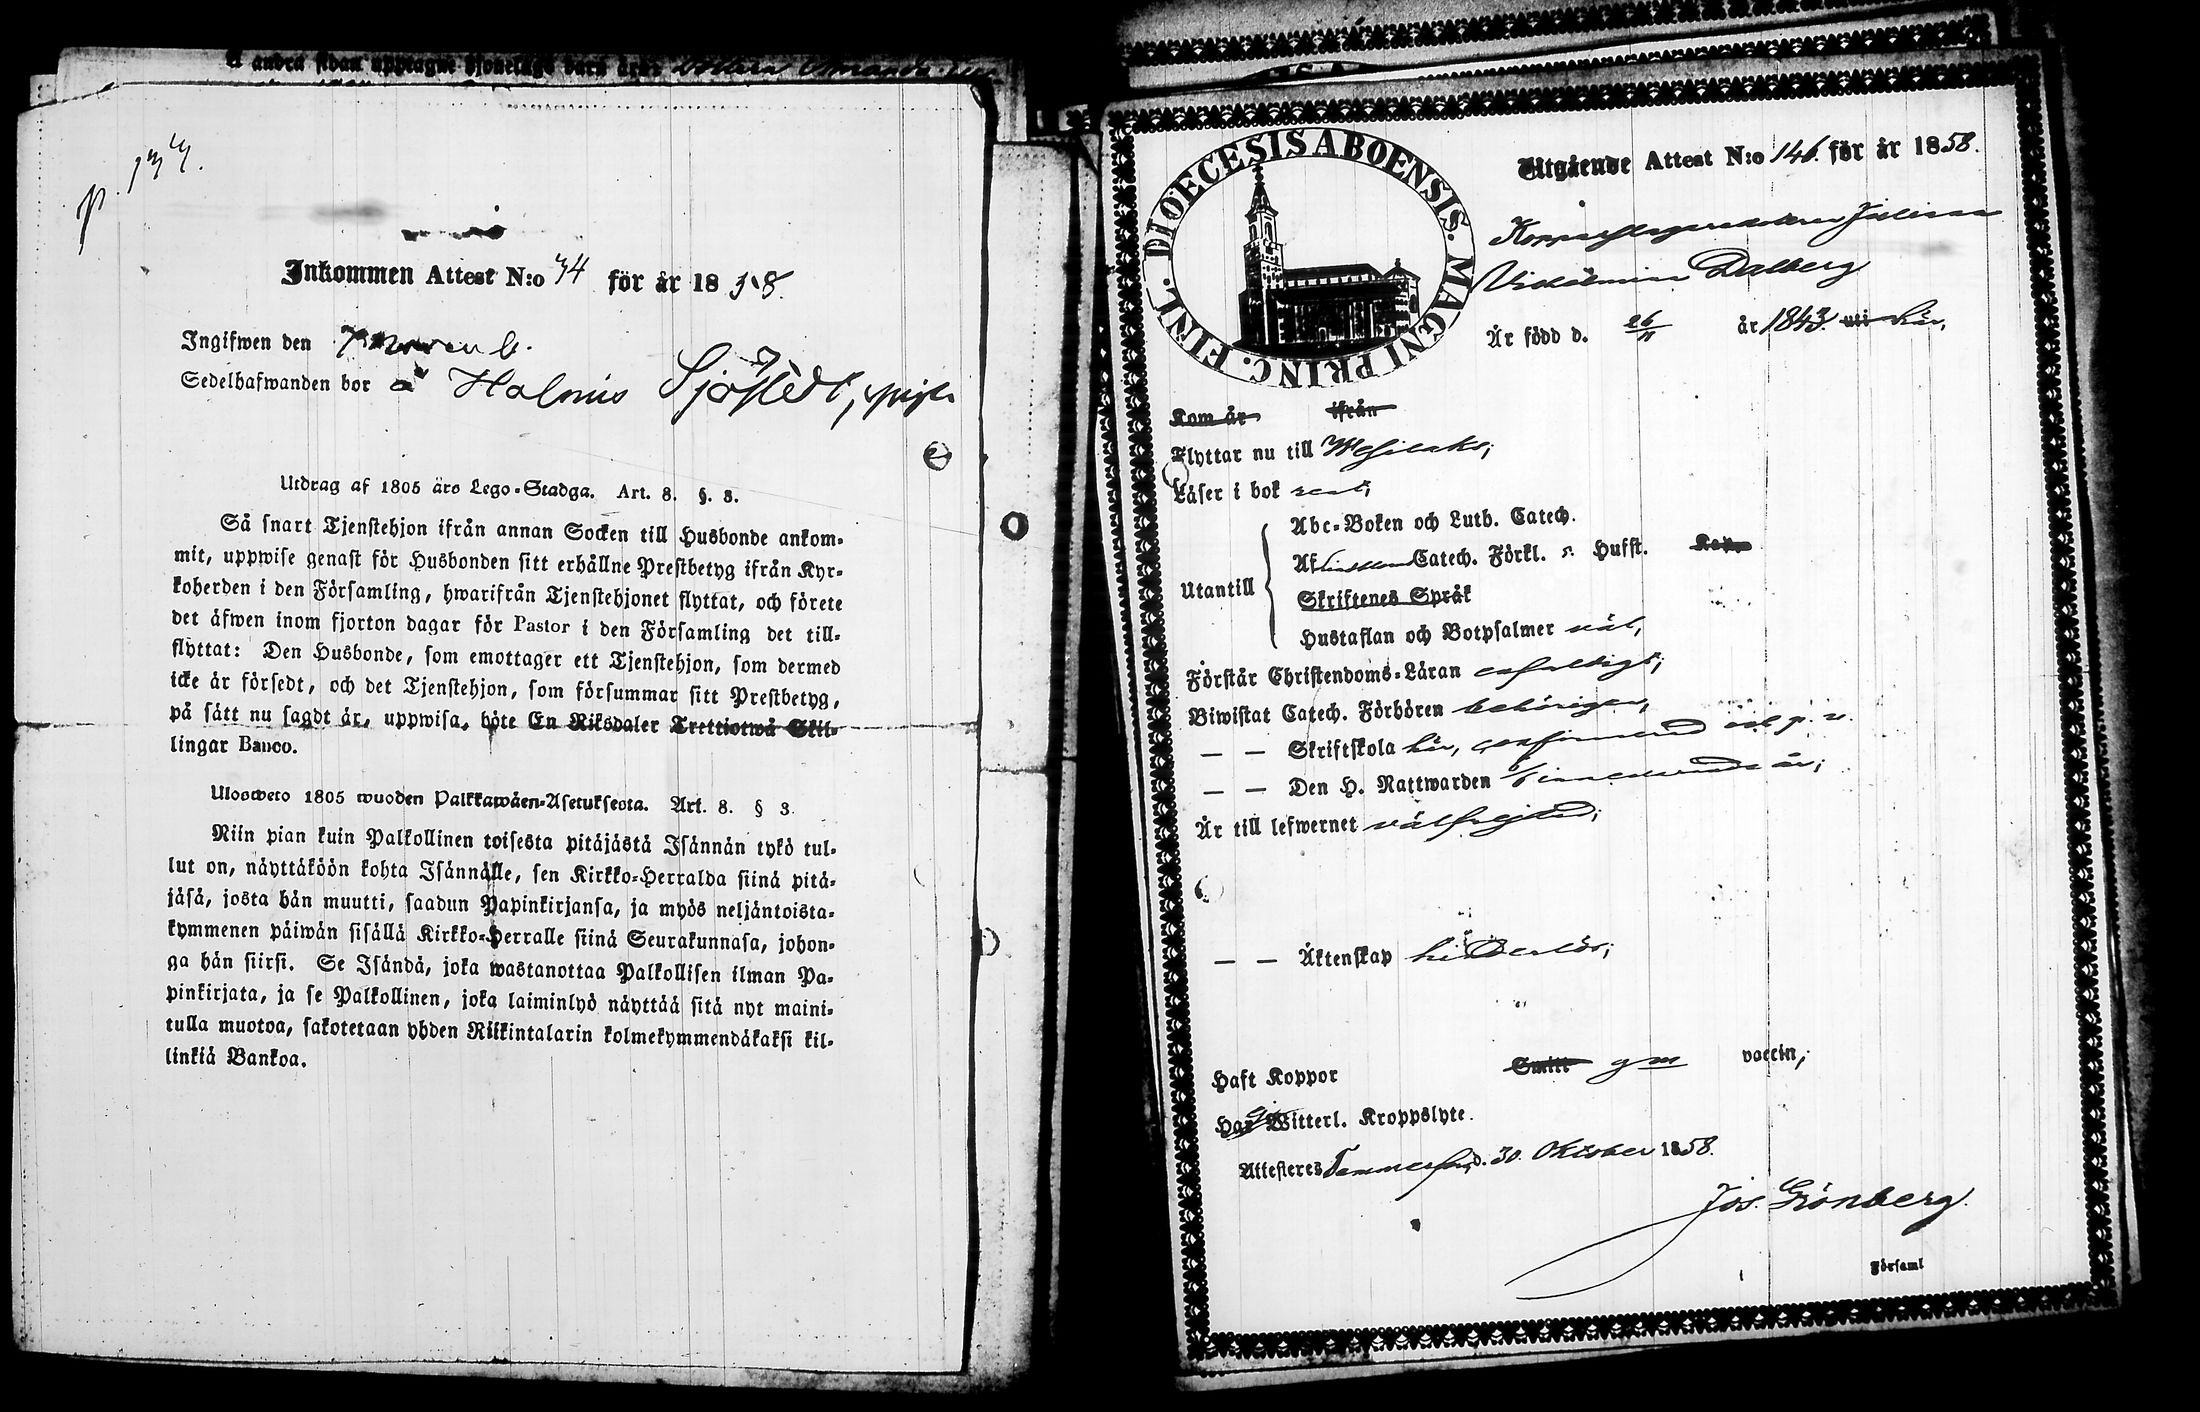 å andra sidan upptagne hjonelags barn äro: Dottren Amanda
p. 174.
Inkommen Attest N:o 74 för år 1858.
Ingifwen den 7 novemb.
Sedelhafwanden bor å Halmis Sjöstedt, piga
Utdrag af 1805 års Lego-Stadga. Art. 8. §. 3.
Så snart Tjenstehjon ifrån annan Socken till Husbonde ankom-
mit, uppwise genast för Husbonden sitt erhållne Prestbetyg ifrån Kyr-
koherden i den Församling, hwarifrån Tjenstehjonet flyttat, och förete
det äfwen inom fjorton dagar för Pastor i den Församling det till-
flyttat: Den Husbonde, som emottager ett Tjenstehjon, som dermed
icke är försedt, och det Tjenstehjon, som försummar sitt Prestbetyg,
på sätt nu sagdt är, uppwisa, böte En Riksdaler Trettiotwå Skil-
lingar Banco.
Ulosweto 1805 wuoden Palkkawäen-Asetuksesta. Art. 8. § 3.
Niin pian kuin Palkollinen toisesta pitäjästä Isännän tykö tul-
lut on, näyttäköön kohta Isännälle, sen Kirkko-Herralda siinä pitä-
jäsä, josta hän muutti, saadun Papinkirjansa, ja myös neljäntoista-
kymmenen päiwän sisällä Kirkko-Herralle siinä Seurakunnasa, johon-
ga hän siirsi. Se Isändä, joka wastanottaa Palkollisen ilman Pa-
pinkirjata, ja se Palkollinen, joka laiminlyö näyttää sitä nyt maini-
tulla muotoa, sakotetaan yhden Riikintalarin kolmekymmendäkaksi kil-
linkiä Bankoa.
DIOECESIS ABOENSIS. MAGNI PRINC. FINL.
Utgående Attest N:o 146. för år 1858.
Kopparslagaredottren Juliana
Vilhelmina Dalberg
Är född d. 26/11 år 1843. uti här,
Kom år ifrån
Flyttar nu till Wesilaks;
Läser i bok rent;
Abc-Boken och Luth. Catech.
Utantill
Af Catech. Förkl. o. Hufst. Kap.
Skriftenes Språk
Hustaflan och Botpsalmer väl,
Förstår Christendoms-Läran enfaldigt;
Biwistat Catech. Förhören behörigen,
— — Skriftskola här, confirmerad
— — Den H. Nattwarden år;
Är till lefwernet välfrejdad;
— — Äktenskap hinderlös;
Haft Koppor Smitt gm vaccin;
Har Ej Witterl. Kroppslyte.
Attesteres Tammerfors, d. 30. Oktober 1858.
Jos. Grönberg.
Församl